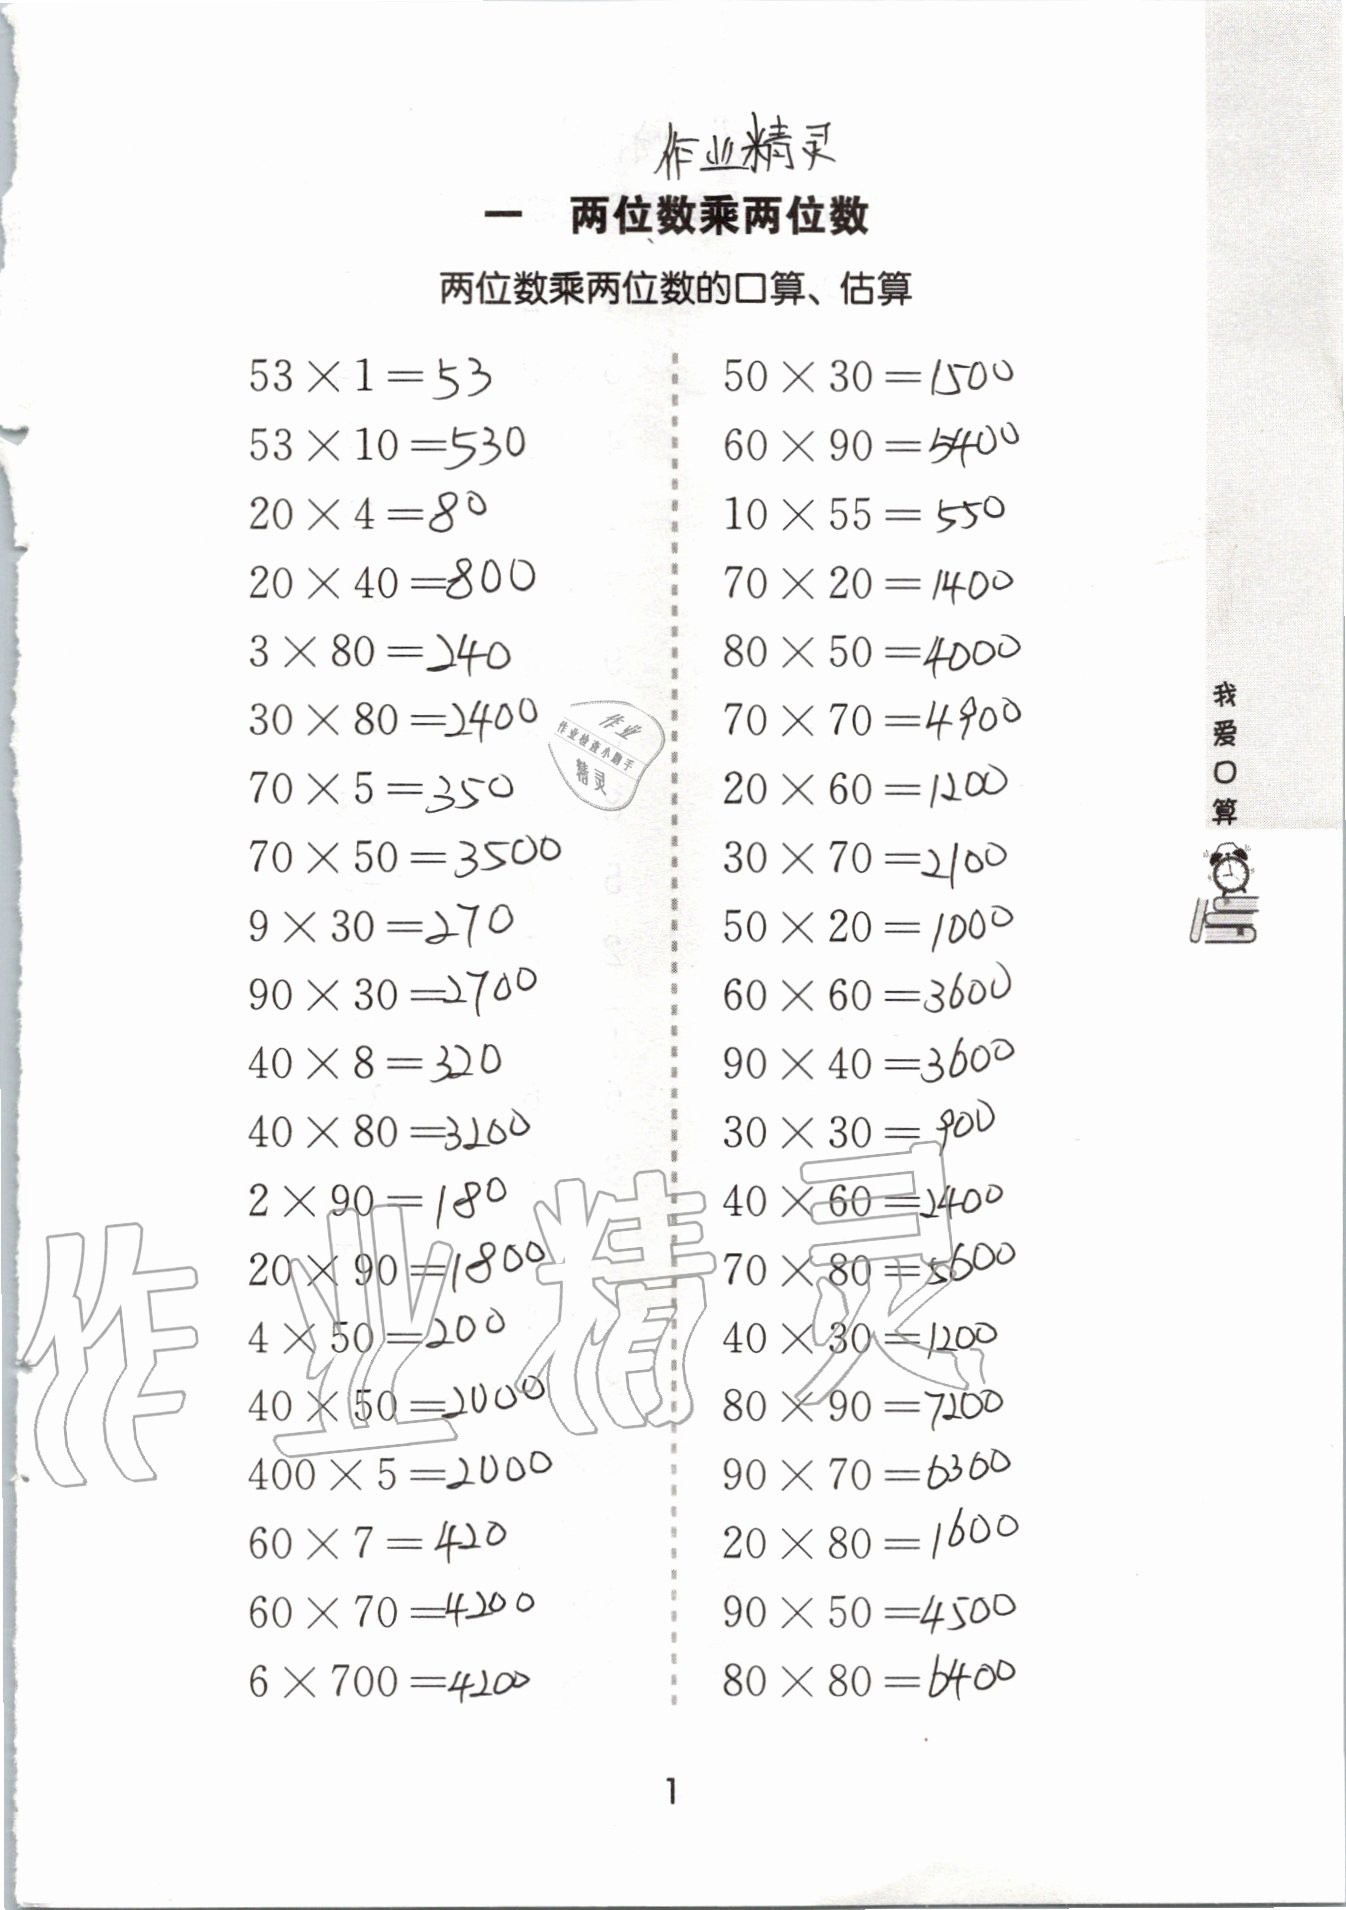 作业精灵
一 两位数乘两位数
两位数乘两位数的口算、估算
53×1=53
53×10=530
20×4=80
20×40=800
3×80=240
30×80=2400
70×5=350
70×50=3500
9×30=270
90×30=2700
40×8=320
40×80=3200
2×90=180
20×90=1800
4×50=200
40×50=2000
400×5=2000
60×7=420
60×70=4200
6×700=4200
50×30=1500
60×90=5400
10×55=550
70×20=1400
80×50=4000
70×70=4900
20×60=1200
30×70=2100
50×20=1000
60×60=3600
90×40=3600
30×30=900
40×60=2400
70×80=5600
40×30=1200
80×90=7200
90×70=6300
20×80=1600
90×50=4500
80×80=6400
我爱口算
作业
作业检查小助手
精灵
作业精灵
1